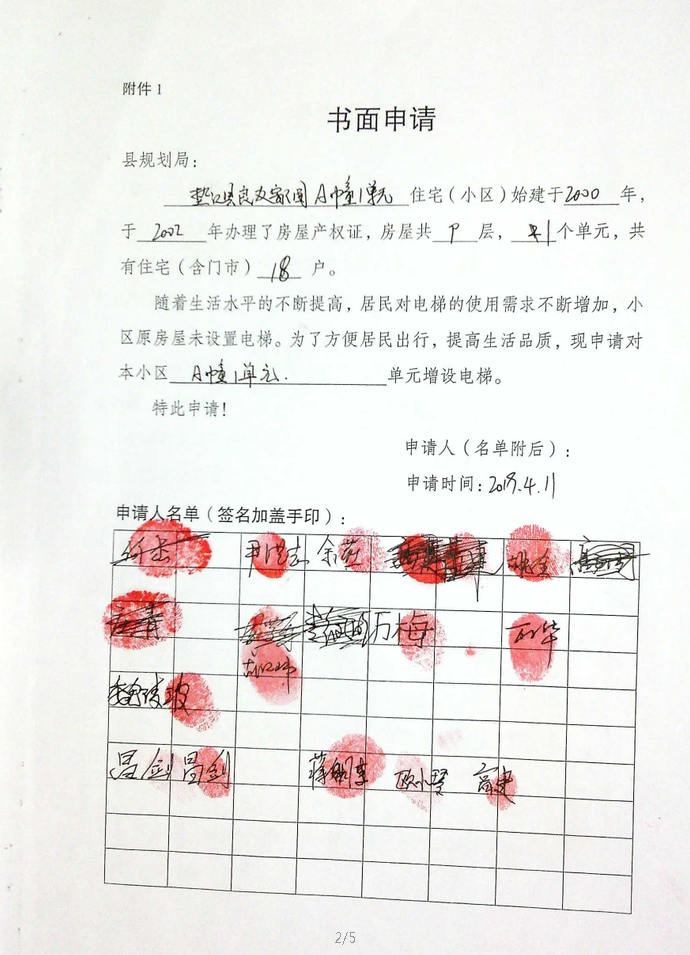 附件1
书面申请
县规划局：
A幢1单元 住宅（小区）始建于2000年，
于 2002 年办理了房屋产权证，房屋共 9 层， 1个单元，共
有住宅（含门市）18 户。
随着生活水平的不断提高，居民对电梯的使用需求不断增加，小
区原房屋未设置电梯。为了方便居民出行，提高生活品质，现申请对
本小区 A幢1单元. 单元增设电梯。
特此申请！
申请人（名单附后）：
申请时间：2018.4.11
申请人名单（签名加盖手印）：
余
万梅
华
昌剑 昌剑 欧小琴 高建
2/5